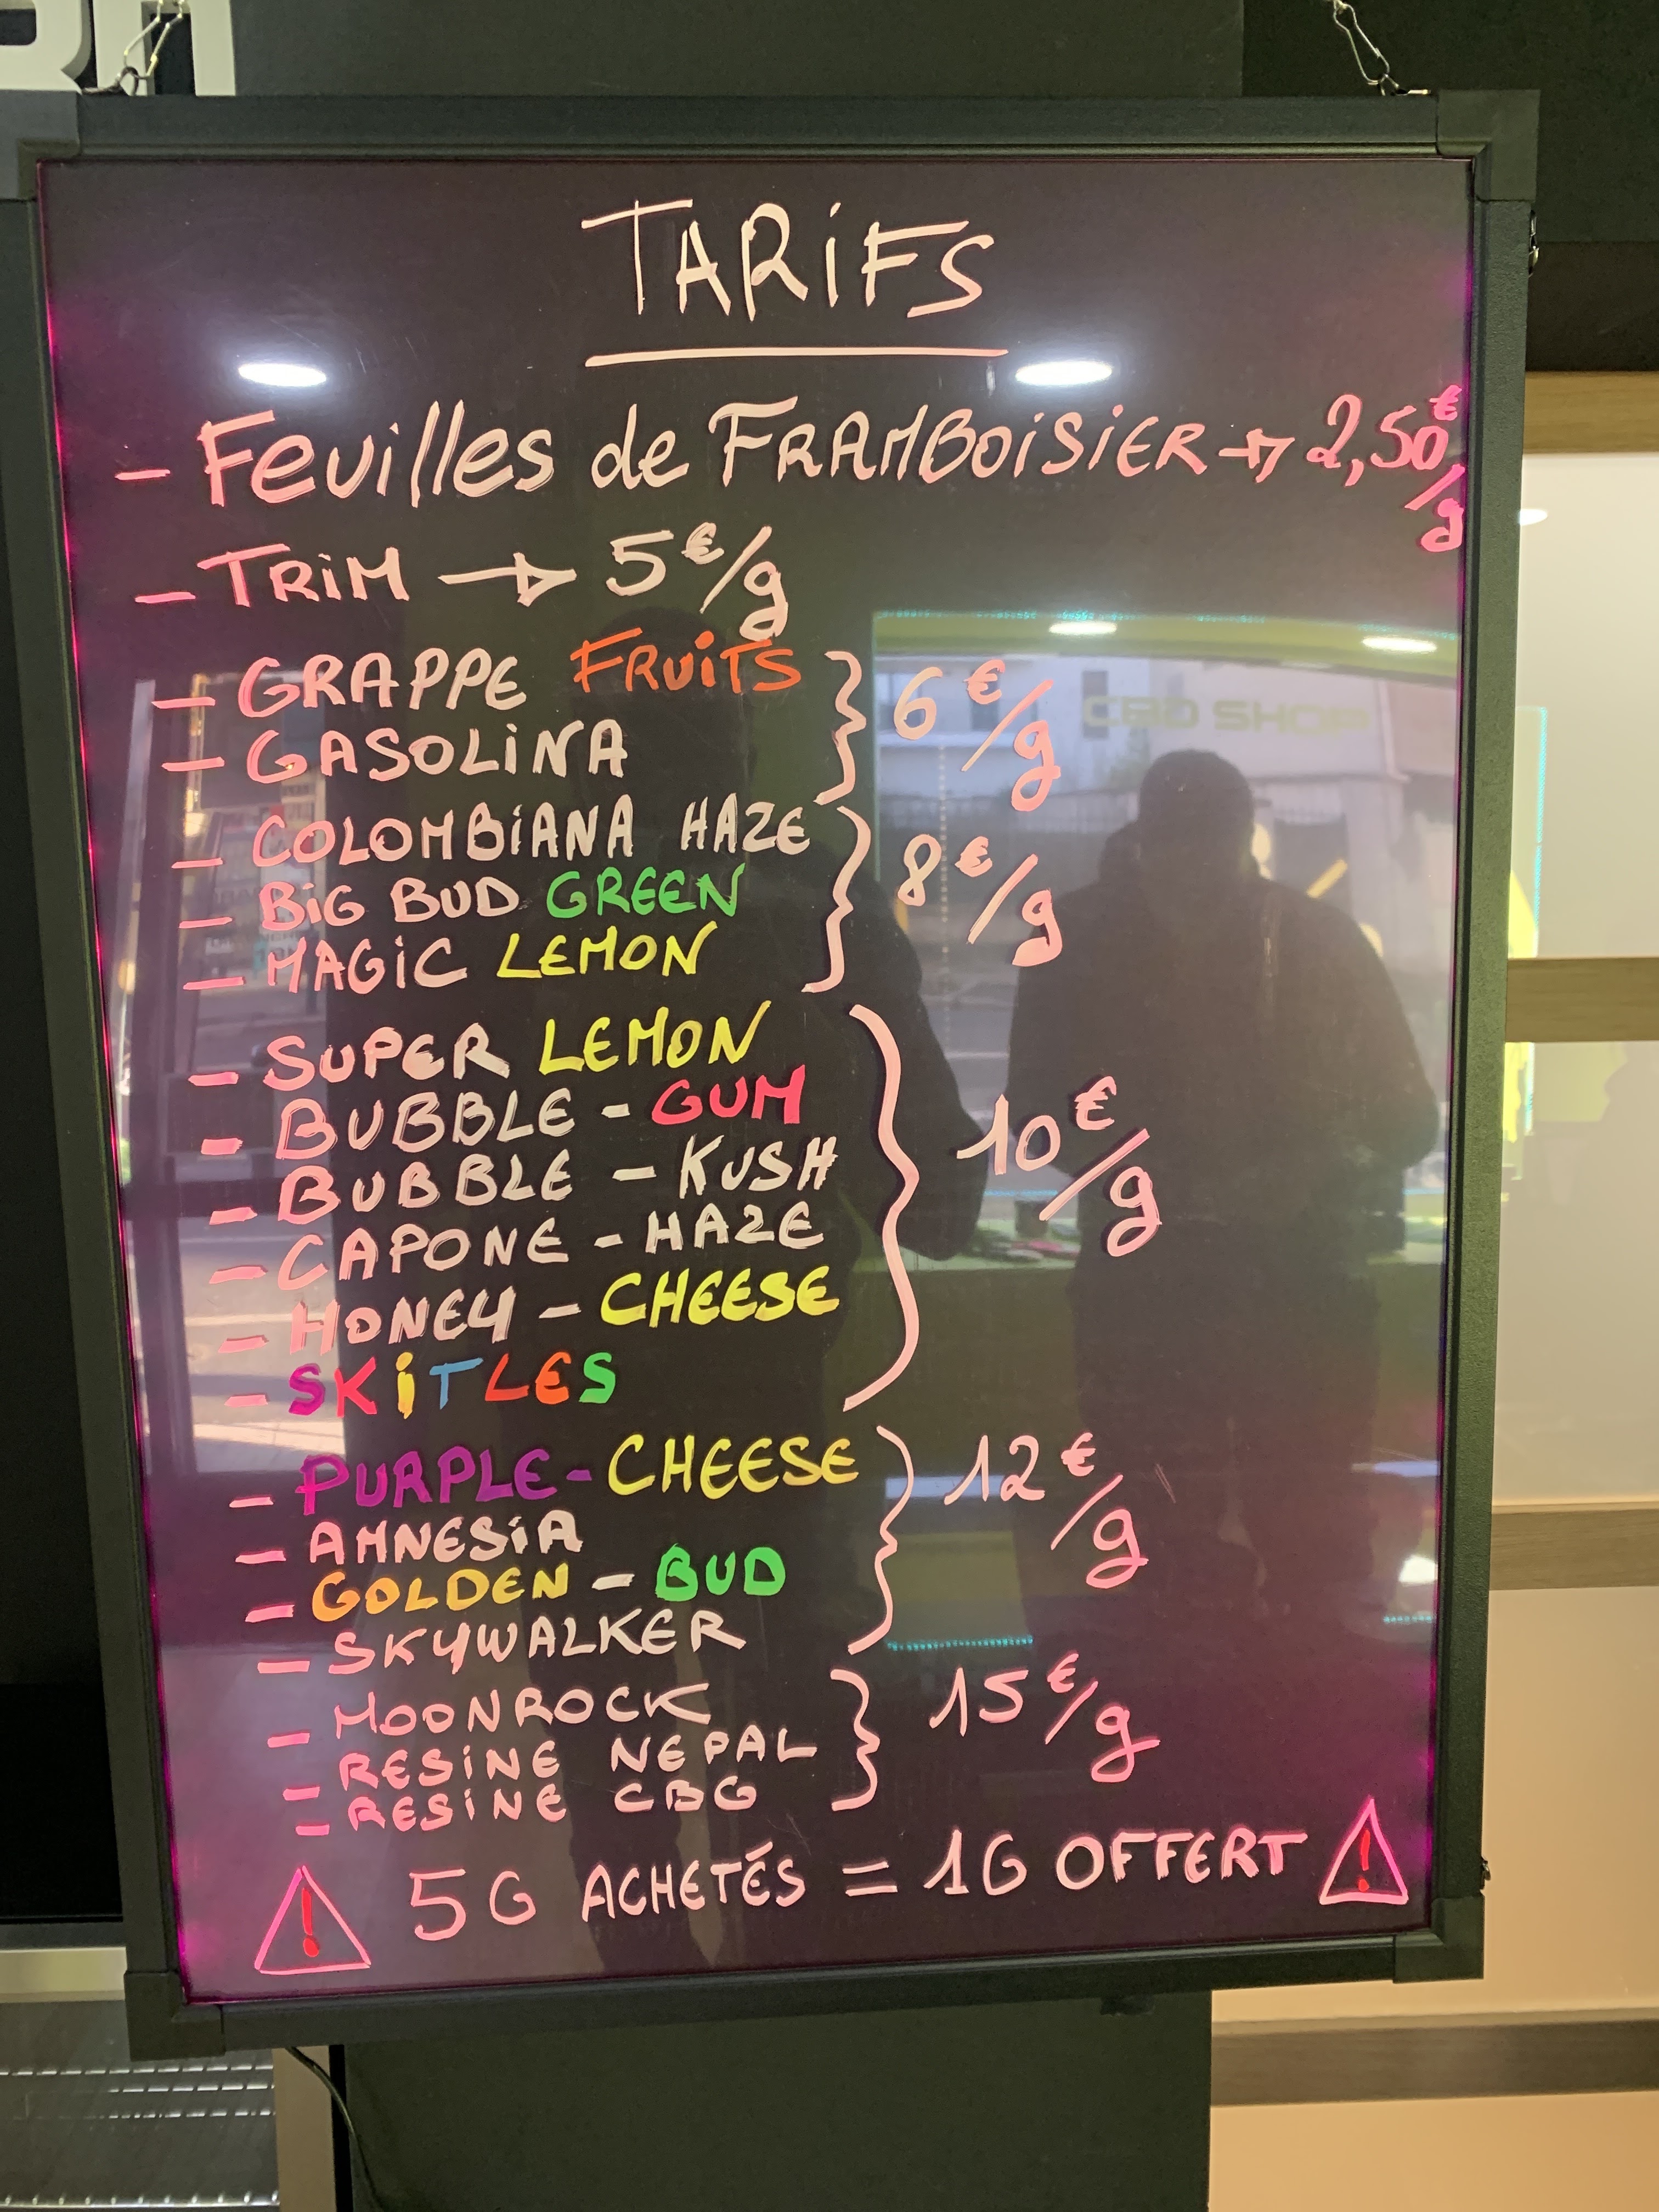 TARIFS
- Feuilles de FRAMBOISIER → 2,50€/g
- TRIM → 5€/g
- GRAPPE FRUITS
- GASOLINA
6€/g
- COLOMBIANA HAZE
- BIG BUD GREEN
- MAGIC LEMON
8€/g
- SUPER LEMON
- BUBBLE - GUM
- BUBBLE - KUSH
- CAPONE - HAZE
- HONEY - CHEESE
- SKITLES
10€/g
- PURPLE - CHEESE
- AMNESIA
- GOLDEN - BUD
- SKYWALKER
12€/g
- MOONROCK
- RESINE NEPAL
- RESINE CBG
15€/g
! 5G ACHETÉS = 1G OFFERT !
CBD SHOP